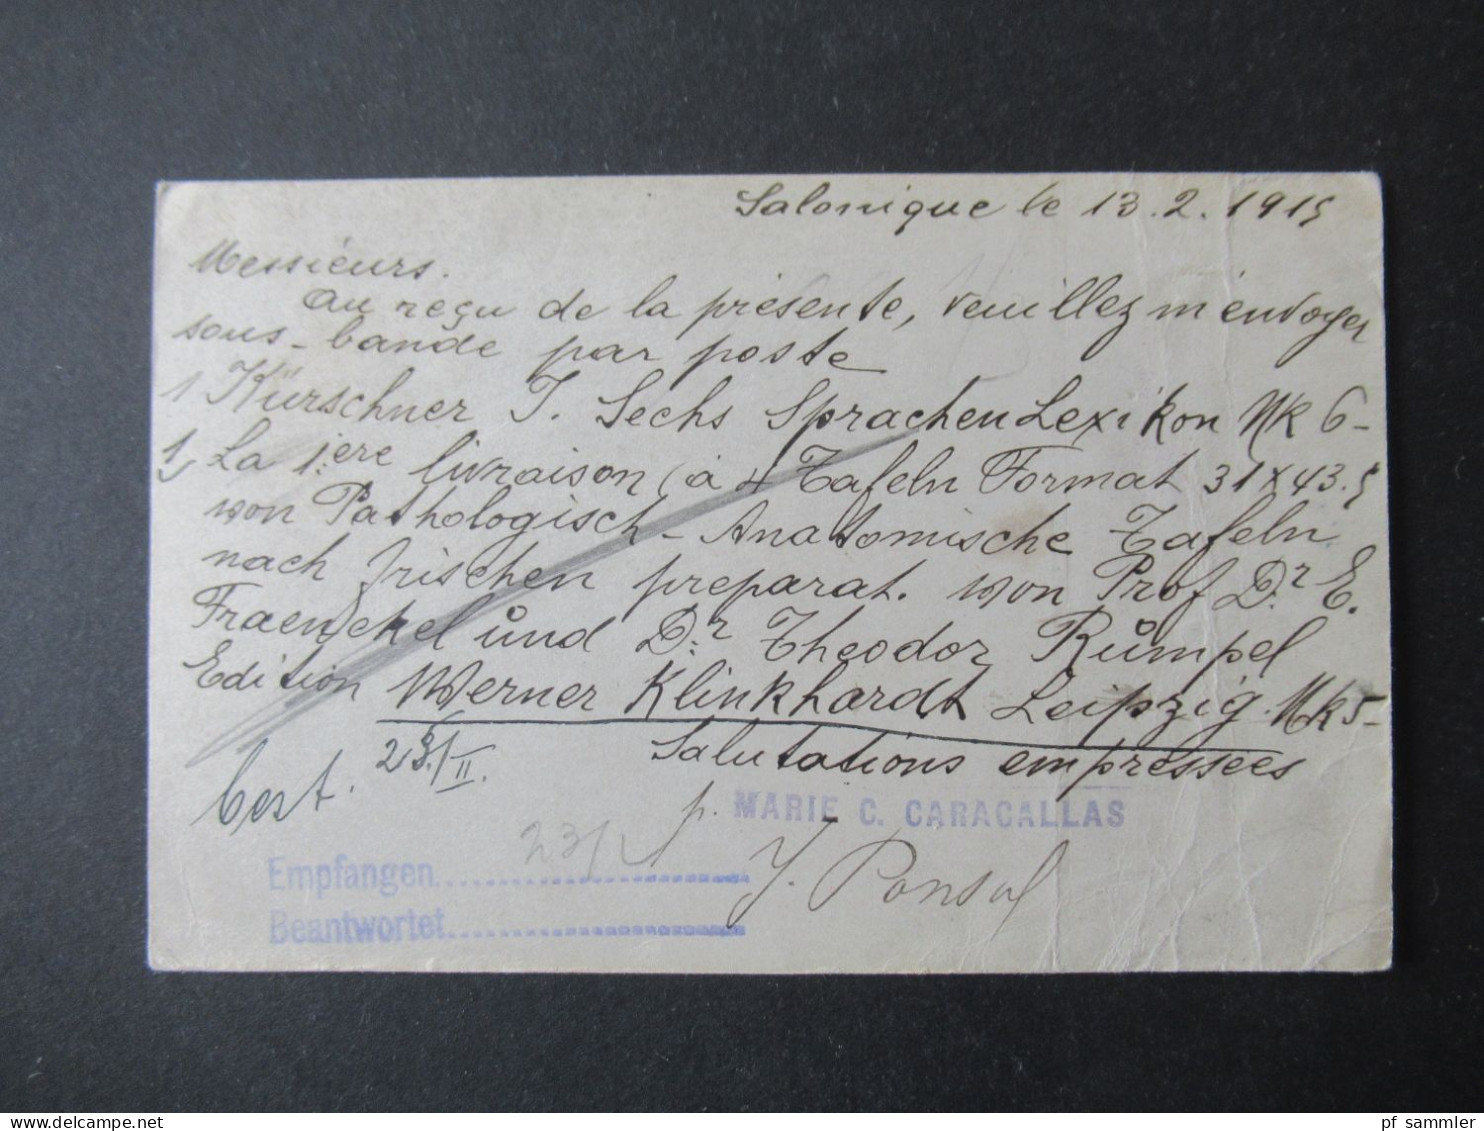 Salonique le 13.2.1915
Messieurs.
Au reçu de la présente, veuillez m'envoyer
sous-bande par poste
1 Kürschner J. Sechs Sprachen Lexikon Mk 6-
1, La 1:ere livraison (à 4 Tafeln Format 31x43.5
von Pathologisch-Anatomische Tafeln
nach frischen preparat. von Prof D:r E.
Fraenckel und D:r Theodor Rumpel
Edition Werner Klinkhardt Leipzig. Mk 5-
Salutations empressées
best. 23./II.
p. MARIE C. CARACALLAS
23/2
Empfangen
J. Ponsal
Beantwortet
pf sammler
www.delcampe.net